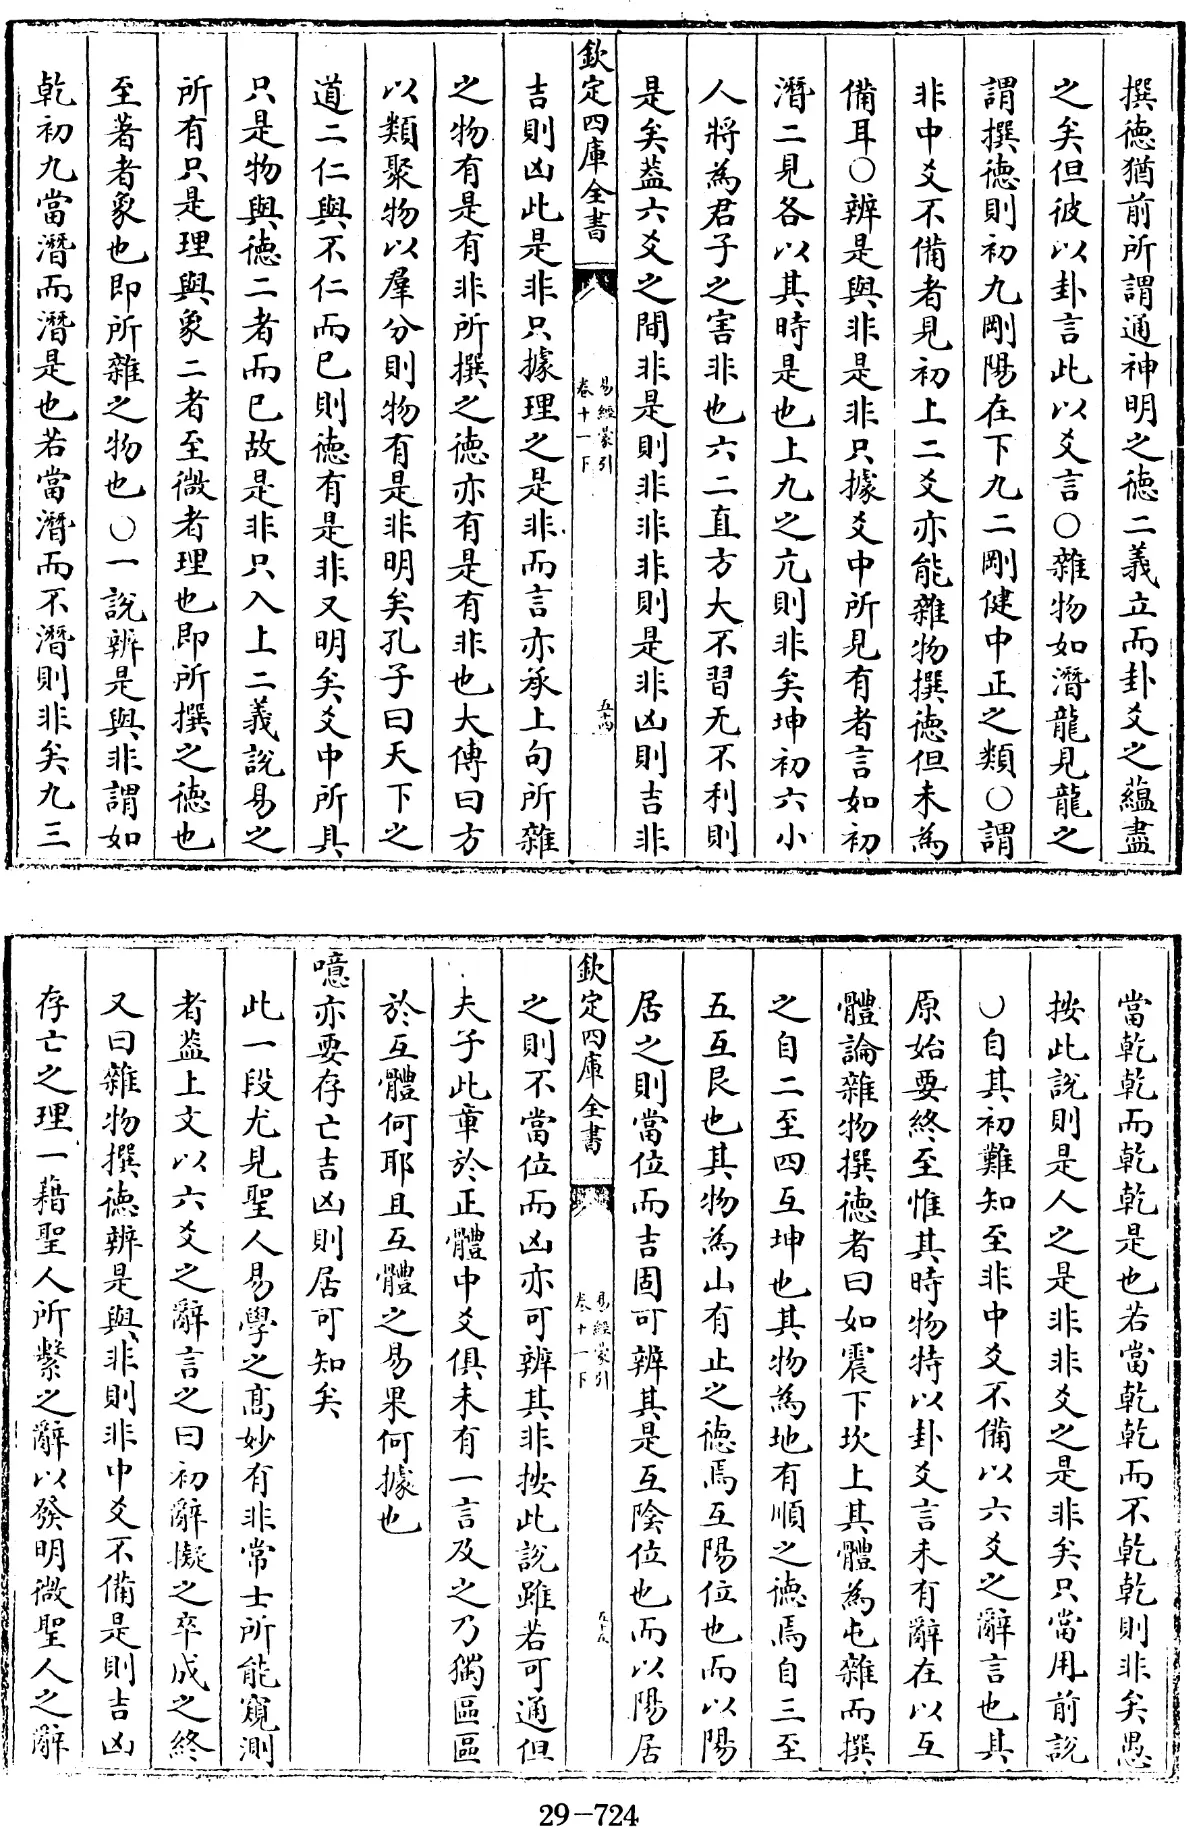 撰德猶前所謂通神明之德二義立而卦爻之蘊盡
之矣但彼以卦言此以爻言○雜物如潛龍見龍之
謂撰德則初九剛陽在下九二剛健中正之類○謂
非中爻不備者見初上二爻亦能雜物撰德但未為
備耳○辨是與非是非只據爻中所見有者言如初
潛二見各以其時是也上九之亢則非矣坤初六小
人將為君子之害非也六二直方大不習无不利則
是矣蓋六爻之間非是則非非非則是非凶則吉非
欽定四庫全書
易經蒙引
卷十一下
五十四
吉則凶此是非只據理之是非而言亦承上句所雜
之物有是有非所撰之德亦有是有非也大傳曰方
以類聚物以羣分則物有是非明矣孔子曰天下之
道二仁與不仁而已則德有是非又明矣爻中所具
只是物與德二者而已故是非只入上二義說易之
所有只是理與象二者至微者理也即所撰之德也
至著者象也即所雜之物也○一說辨是與非謂如
乾初九當潛而潛是也若當潛而不潛則非矣九三
當乾乾而乾乾是也若當乾乾而不乾乾則非矣愚
按此說則是人之是非非爻之是非矣只當用前說
○自其初難知至非中爻不備以六爻之辭言也其
原始要終至惟其時物特以卦爻言未有辭在以互
體論雜物撰德者曰如震下坎上其體為屯雜而撰
之自二至四互坤也其物為地有順之德焉自三至
五互艮也其物為山有止之德焉互陽位也而以陽
居之則當位而吉固可辨其是互陰位也而以陽居
欽定四庫全書
易經蒙引
卷十一下
五十五
之則不當位而凶亦可辨其非按此說雖若可通但
夫子此章於正體中爻俱未有一言及之乃獨區區
於互體何耶且互體之易果何據也
噫亦要存亡吉凶則居可知矣
此一段尤見聖人易學之高妙有非常士所能窺測
者蓋上文以六爻之辭言之曰初辭擬之卒成之終
又曰雜物撰德辨是與非則非中爻不備是則吉凶
存亡之理一藉聖人所繫之辭以發明微聖人之辭
29-724